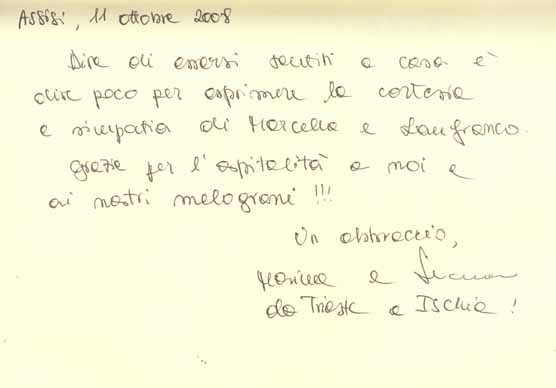 Assisi, 11 ottobre 2008
Dire di essersi sentiti a casa è
dire poco per esprimere la cortesia
e simpatia di Marcella e Lanfranco.
Grazie per l'ospitalità a noi e
ai nostri melograni !!!
Un abbraccio,
e
da Trieste e Ischia !